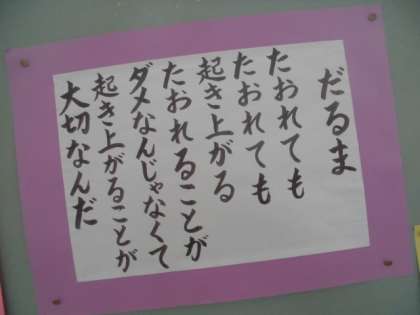 だるま
たおれても
たおれても
起き上がる
たおれることが
ダメなんじゃなくて
起き上がることが
大切なんだ